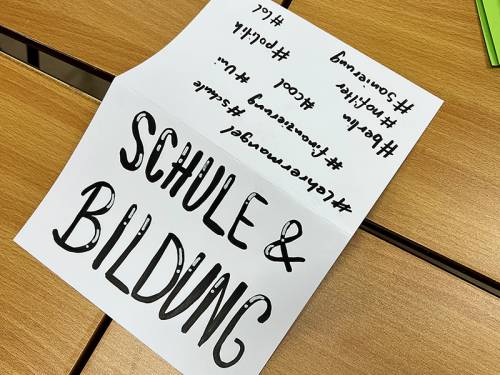 SCHULE &
BILDUNG
#lehrermangel
#schule
#finanzierung
#Uni
#cool
#berlin
#nofilter
#sanierung
#politik
#lol